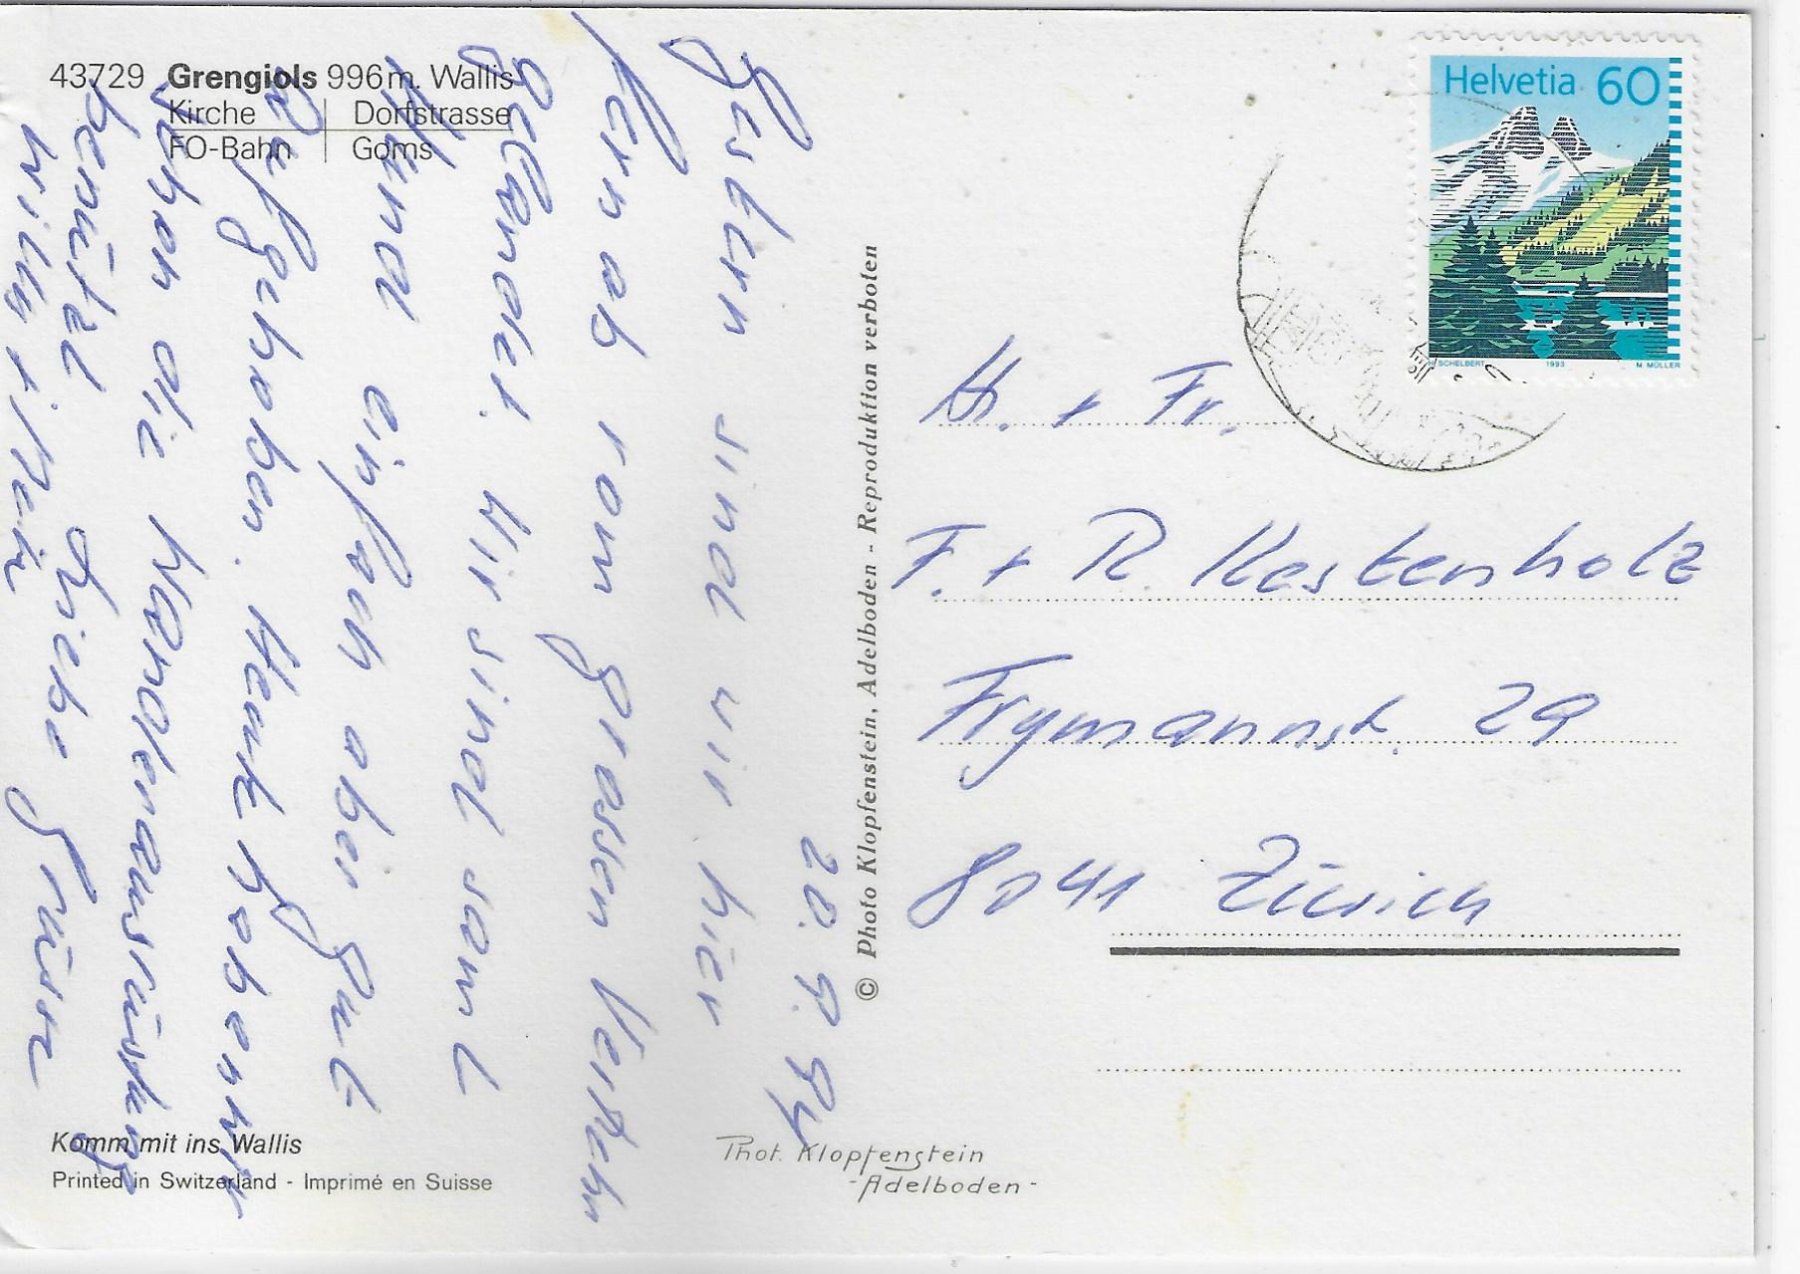 43729 Grengiols 996 m. Wallis
Kirche | Dorfstrasse
FO-Bahn | Goms
20. 9. 94
Gestern sind wir hier
fern ab vom grossen Verkehr
gelandet. Wir sind samt
Hund einfach aber gut
aufgehoben. Heute haben wir
schon die Wanderausrüstung
benützt. Liebe Grüsse
Komm mit ins Wallis
Printed in Switzerland - Imprimé en Suisse
© Photo Klopfenstein, Adelboden - Reproduktion verboten
Phot. Klopfenstein
- Adelboden -
Helvetia 60
SCHELBERT 1993 M. MÜLLER
Hr. + Fr.
F. + R. Kestenholz
Frymannst. 29
8041 Zürich